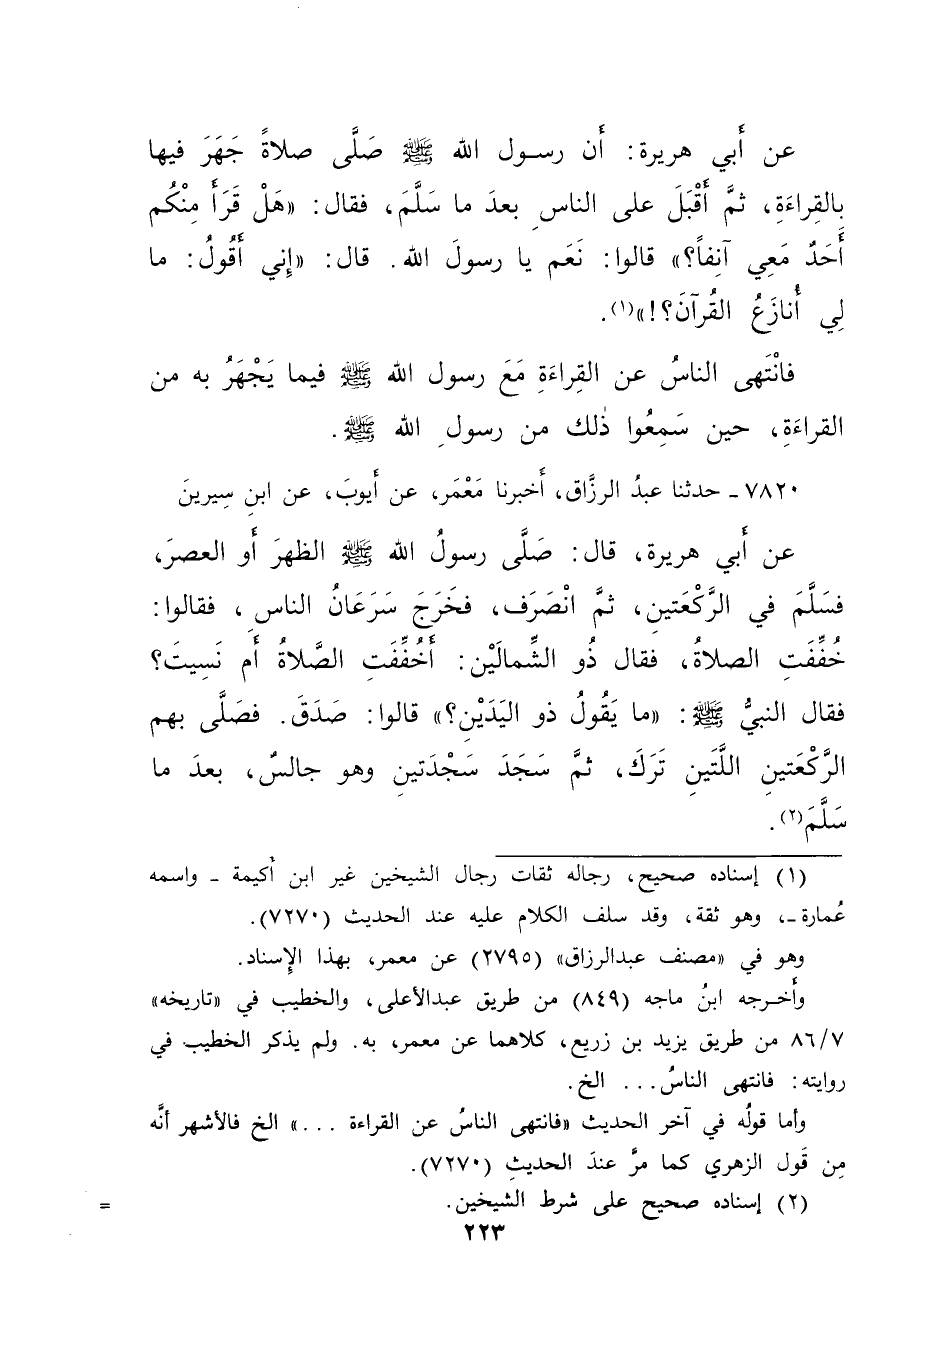 عن أَبي هريرة: أَن رسـول الله ﷺ صَلَّى صلاةً جَهَرَ فيها
بِالقِراءَةِ، ثمَّ أَقْبَلَ على الناسِ بعدَ ما سَلَّمَ، فقال: «هَلْ قَرَأَ مِنْكُم
أَحَدٌ مَعِي آنِفاً؟» قالوا: نَعَم يا رسولَ الله. قال: «إِني أَقُولُ: ما
لِي أُنازَعُ القُرآنَ؟!»(١).
فانْتَهى الناسُ عن القِراءَةِ مَعَ رسول الله ﷺ فيما يَجْهَرُ به من
القراءَةِ، حين سَمِعُوا ذٰلك من رسولِ الله ﷺ.
٧٨٢٠ـ حدثنا عبدُ الرزَّاق، أَخبرنا مَعْمَر، عن أَيوبَ، عن ابنِ سِيرينَ
عن أَبي هريرة، قال: صَلَّى رسولُ الله ﷺ الظهرَ أَو العصرَ،
فسَلَّمَ في الرَّكْعَتينِ، ثمَّ انْصَرَف، فخَرَجَ سَرَعَانُ الناسِ، فقالوا:
خُفِّفَتِ الصلاةُ، فقال ذُو الشِّمالَيْنِ: أَخُفِّفَتِ الصَّلاةُ أَم نَسِيتَ؟
فقال النبيُّ ﷺ: «ما يَقُولُ ذو اليَدَيْنِ؟» قالوا: صَدَقَ. فصَلَّى بهم
الرَّكْعَتينِ اللَّتَينِ تَرَكَ، ثمَّ سَجَدَ سَجْدَتينِ وهو جالسٌ، بعدَ ما
سَلَّمَ(٢).
(١) إسناده صحيح، رجاله ثقات رجال الشيخين غير ابن أُكيمة ـ واسمه
عُمارة ـ، وهو ثقة، وقد سلف الكلام عليه عند الحديث (٧٢٧٠).
وهو في «مصنف عبدالرزاق» (٢٧٩٥) عن معمر، بهذا الإِسناد.
وأَخـرجه ابنُ ماجه (٨٤٩) من طريق عبدالأعلى، والخطيب في «تاريخه»
٨٦/٧ من طريق يزيد بن زريع، كلاهما عن معمر، به. ولم يذكر الخطيب في
روايته: فانتهى الناسُ... الخ.
وأما قولُه في آخر الحديث «فانتهى الناسُ عن القراءة ...» الخ فالأشهر أنَّه
مِن قَول الزهري كما مرَّ عندَ الحديثِ (٧٢٧٠).
(٢) إسناده صحيح على شرط الشيخين.
=
٢٢٣